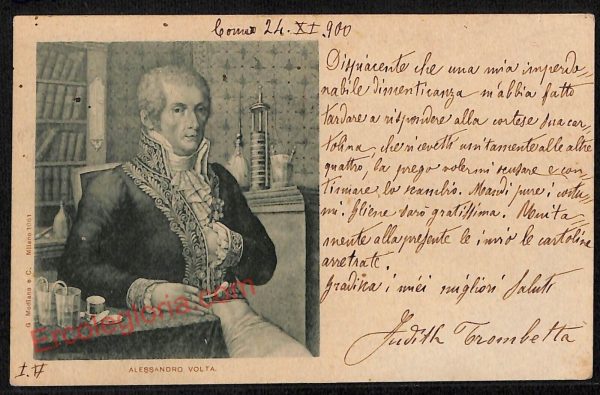 Como 24. XI. 900
Dispiacente che una mia imperdo-
nabile dimenticanza m'abbia fatto
tardare a rispondere alla cortese sua car-
tolina, che ricevetti unitamente alle altre
quattro, la prego volermi scusare e con-
tinuare lo scambio. Mandi pure i costu-
mi. Gliene sarò gratissima. Unita-
mente alla presente le invio le cartoline
arretrate.
Gradisca i miei migliori saluti
Judith Trombetta
G. Modiano e C. Milano 1051
Ercolegloria.com
ALESSANDRO VOLTA.